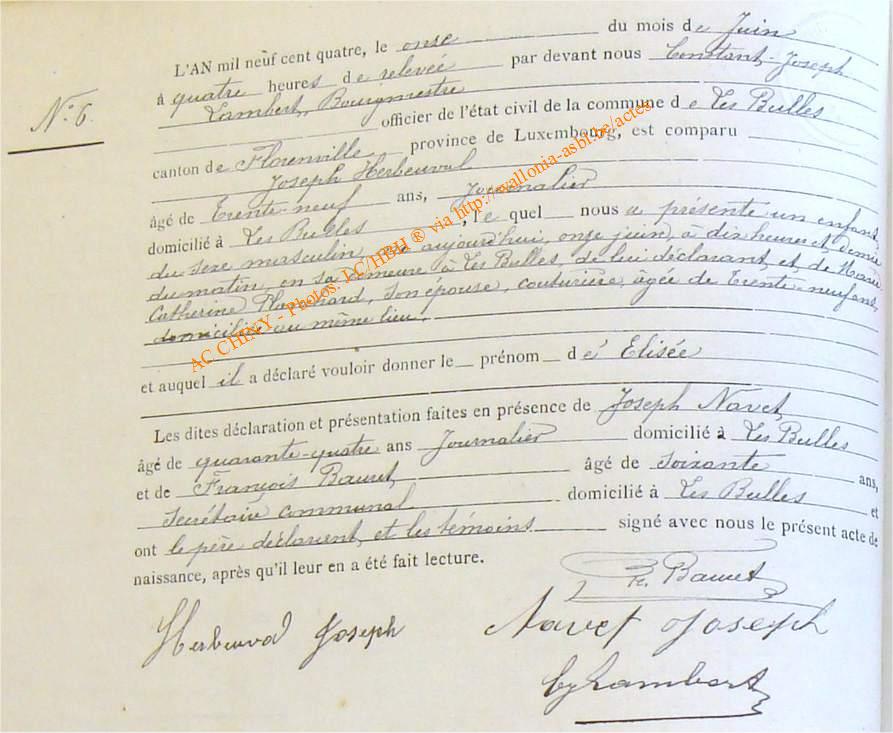 N° 6.
L'AN mil neuf cent quatre, le onze du mois de Juin
à quatre heures de relevée par devant nous Constant-Joseph
Lambert, Bourgmestre
officier de l'état civil de la commune de Les Bulles
canton de Florenville province de Luxembourg, est comparu
Joseph Herbeuval
âgé de Trente-neuf ans, Journalier
domicilié à Les Bulles, le quel nous a présenté un enfant,
du sexe masculin, né aujourd'hui, onze juin, à dix heures et demie
du matin, en sa demeure à Les Bulles, de lui déclarant, et de Marie
Catherine Planchard, son épouse, couturière, âgée de Trente-neuf ans,
domiciliée au même lieu.
et auquel il a déclaré vouloir donner le prénom d'Elisée
Les dites déclaration et présentation faites en présence de Joseph Navet,
âgé de quarante-quatre ans Journalier domicilié à Les Bulles
et de François Bauret, âgé de soixante ans,
Secrétaire communal domicilié à Les Bulles et
ont le père déclarant, et les témoins signé avec nous le présent acte de
naissance, après qu'il leur en a été fait lecture.
Fr. Bauret
Herbeuval Joseph
Navet Joseph
Lambert
AC CHINY - Photos: LC/HBH ® via http://wallonia-asbl.be/actes